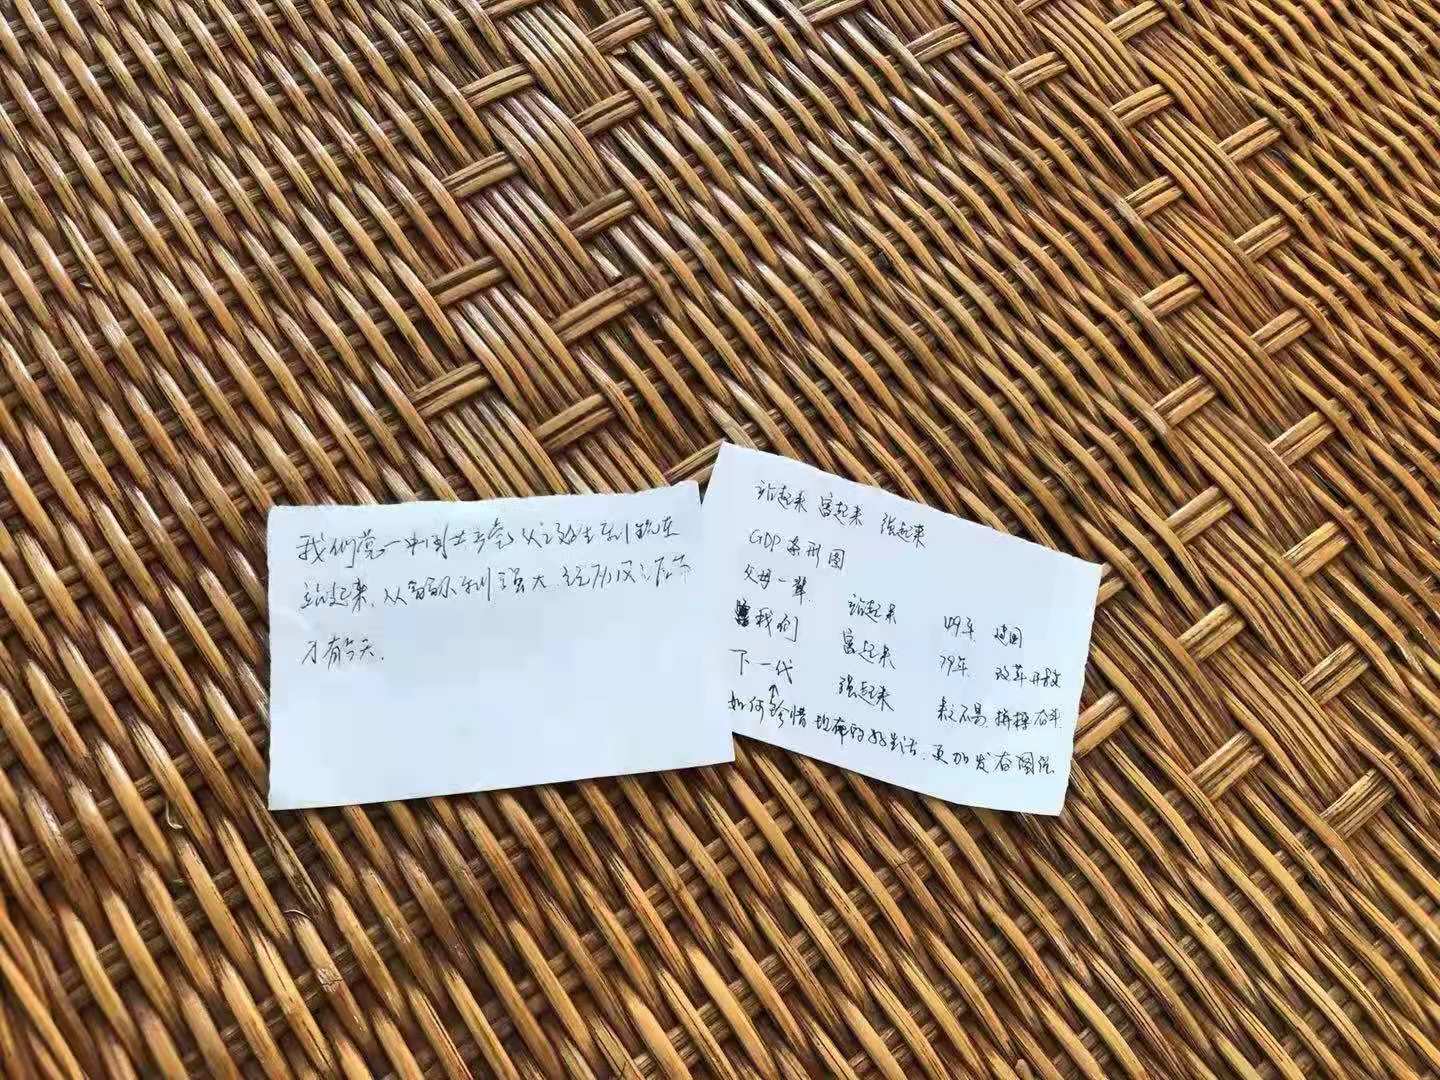 我们党一中国共产党从诞生到现在
站起来,从弱小到强大.经历风风雨雨
才有今天.
站起来 富起来 强起来
GDP条形图
父母一辈 站起来 49年 建国
我们 富起来 79年 改革开放
下一代 强起来 来之不易 拼搏奋斗.
如何珍惜现在的好生活.更加发奋图强